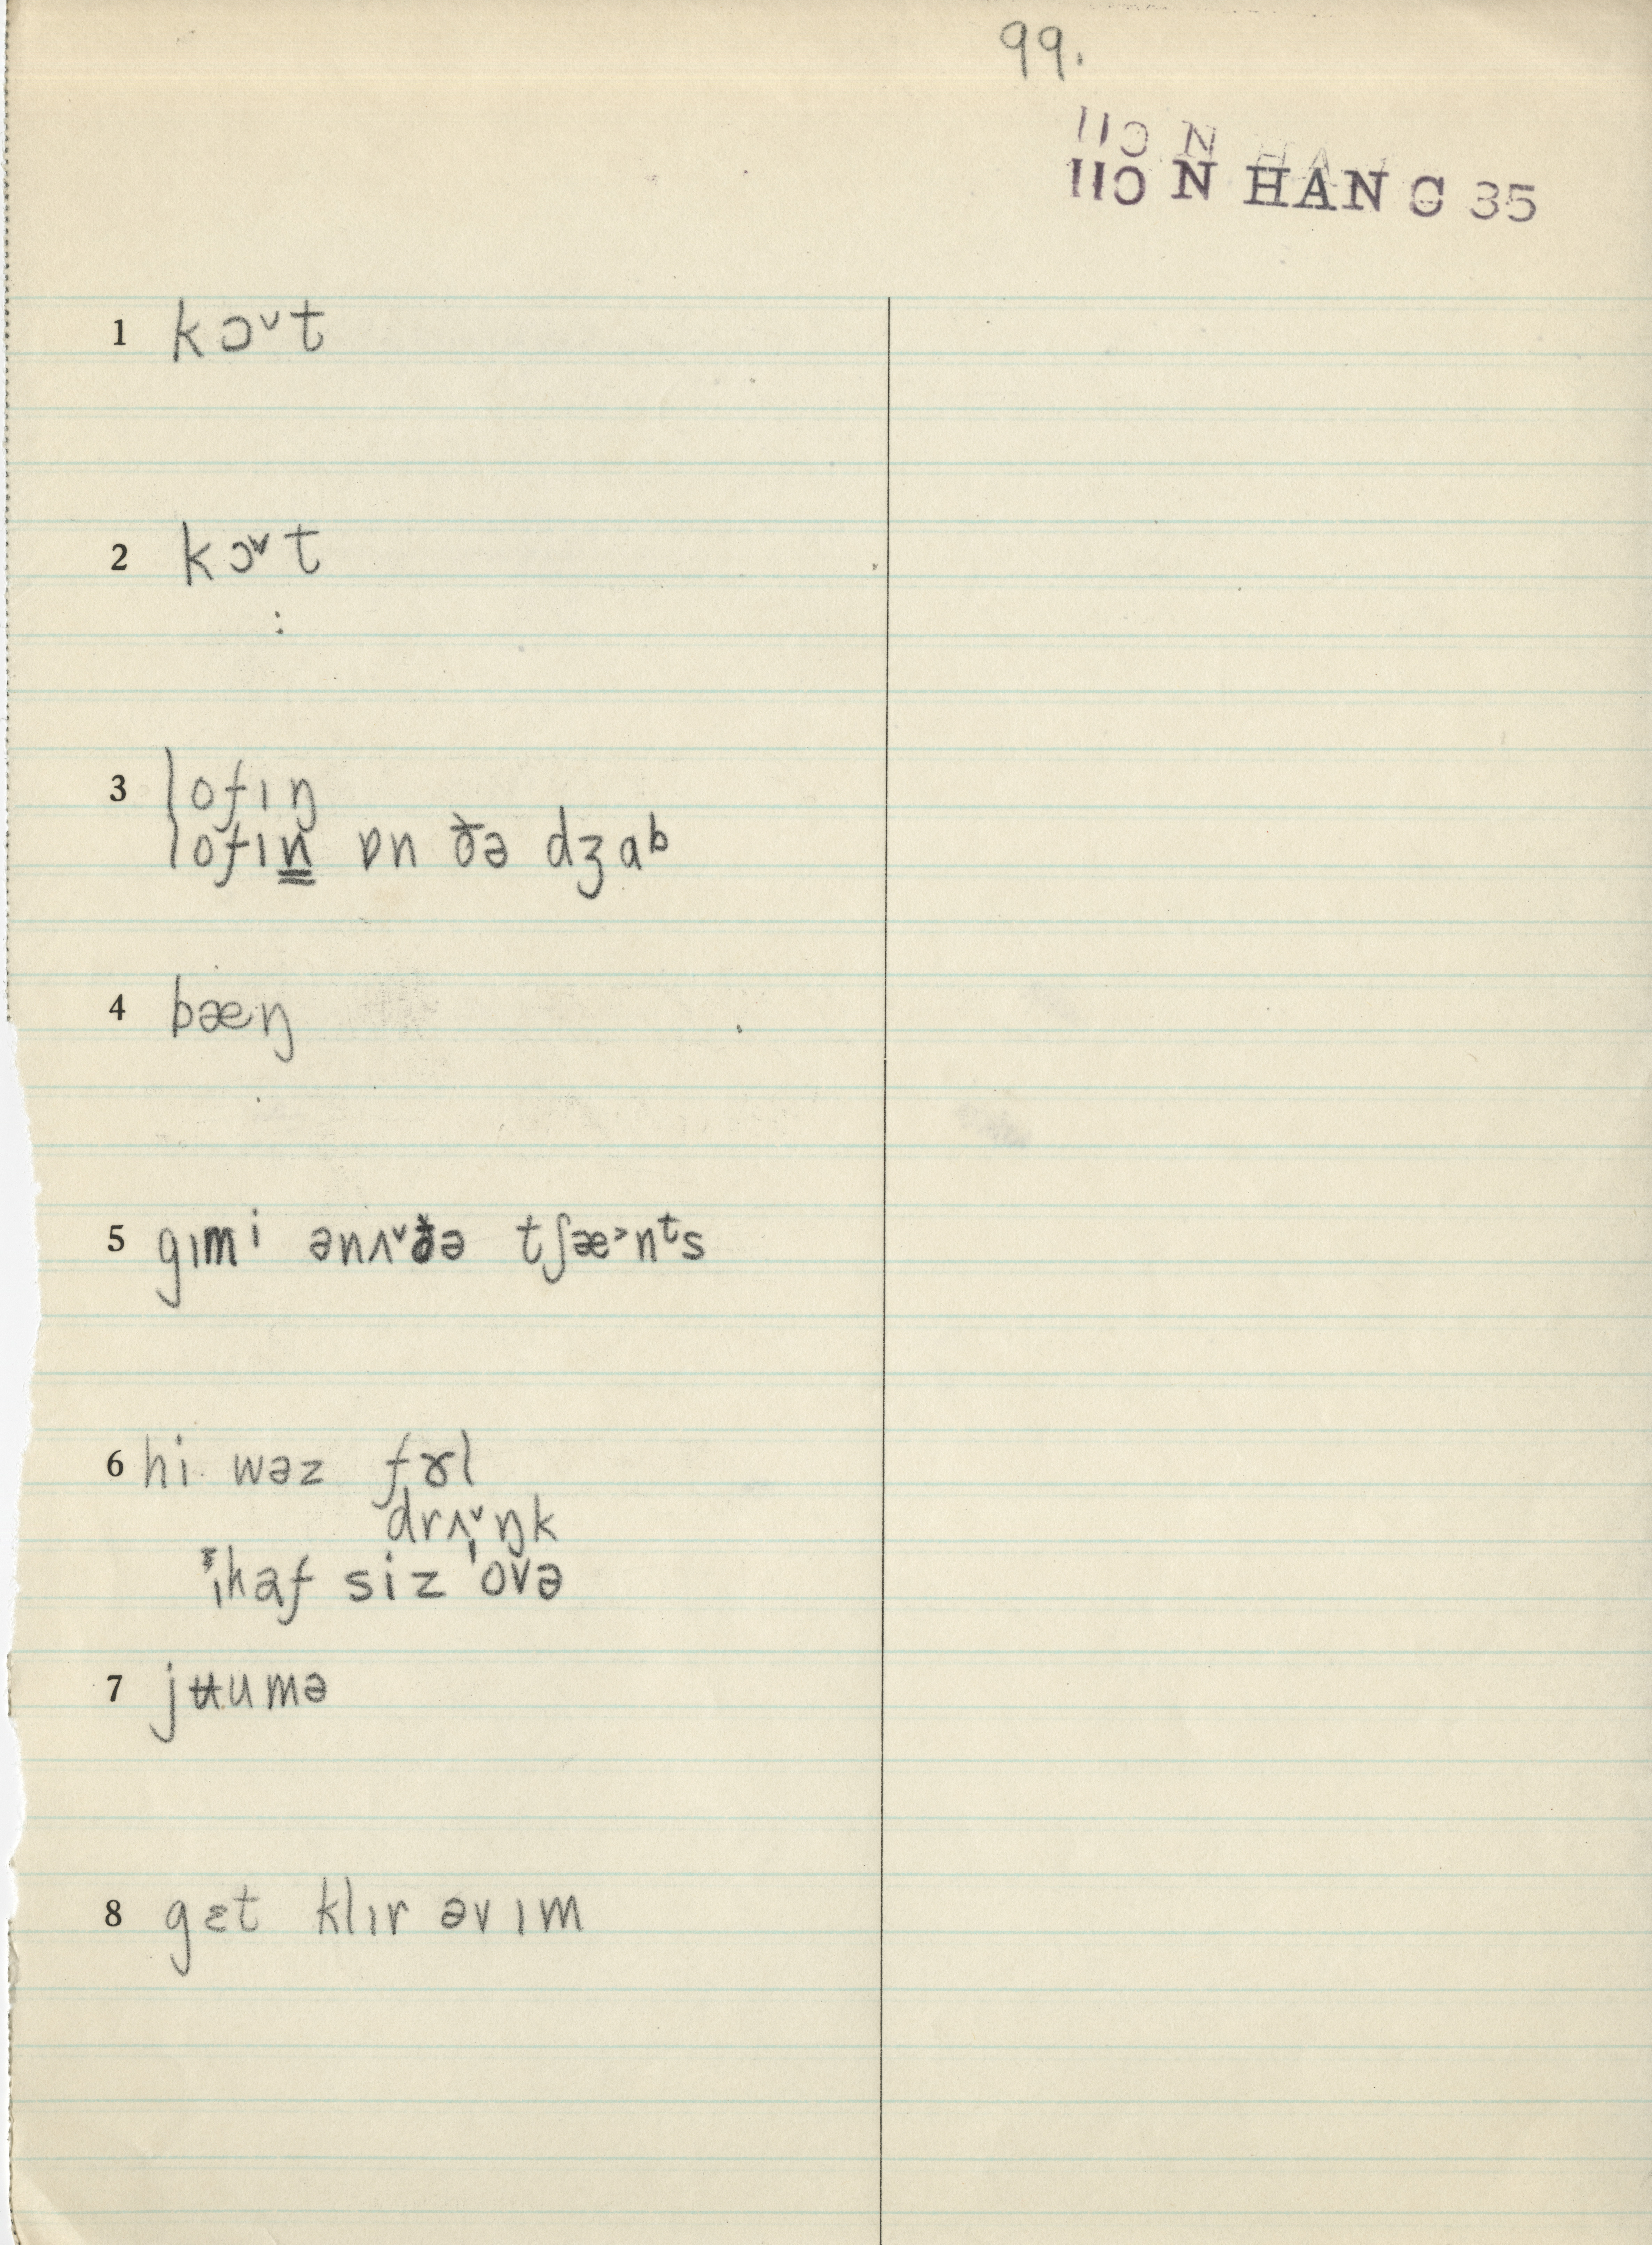 99.
11Ɔ N HAN C 35
1 kɔ˅t
2 kɔ˅t
:
3 lofɪŋ
lofɪn ɒn ðə dʒab
4 bæŋ
5 gɪmi ənʌ˅ðə tʃæ˃nᵗs
6 hi wəz fɤl
drʌ˅ŋk
ɪhaf siz 'ovə
7 jʉumə
8 gɛt klɪr əv ɪm